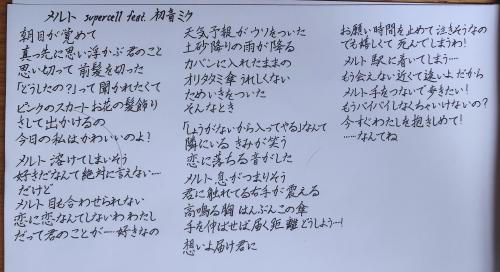 メルト supercell feat. 初音ミク
朝目が覚めて
真っ先に思い浮かぶ君のこと
思い切って前髪を切った
「どうしたの?」って聞かれたくて
ピンクのスカートお花の髪飾り
さして出かけるの
今日の私はかわいいのよ!
メルト 溶けてしまいそう
好きだなんて絶対に言えない…
だけど
メルト 目も合わせられない
恋に恋なんてしないわ わたし
だって君のことが……好きなの
天気予報がウソをついた
土砂降りの雨が降る
カバンに入れたままの
オリタタミ傘 うれしくない
ためいきをついた
そんなとき
「しょうがないから入ってやる」なんて
隣にいる きみが笑う
恋に落ちる音がした
メルト 息がつまりそう
君に触れてる右手が震える
高鳴る胸 はんぶんこの傘
手を伸ばせば届く距離 どうしよう…!
想いよ届け君に
お願い時間を止めて泣きそうなの
でも嬉しくて 死んでしまうわ!
メルト 駅に着いてしまう…
もう会えない近くて遠いよ だから
メルト手をつないで歩きたい!
もうバイバイしなくちゃいけないの?
今すぐわたしを抱きしめて!
……なんてね